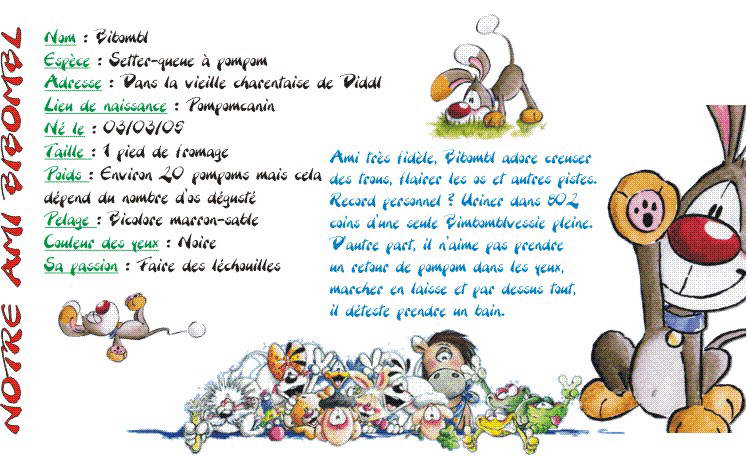 NOTRE AMI BIBOMBL
Nom : Bibombl
Espèce : Setter-queue à pompom
Adresse : Dans la vieille charentaise de Diddl
Lieu de naissance : Pompomcanin
Né le : 03/03/05
Taille : 1 pied de fromage
Poids : Environ 20 pompoms mais cela
dépend du nombre d'os dégusté
Pelage : Bicolore marron-sable
Couleur des yeux : Noire
Sa passion : Faire des léchouilles
Ami très fidèle, Bibombl adore creuser
des trous, flairer les os et autres pistes.
Record personnel ? Uriner dans 802
coins d'une seule Bimbomblvessie pleine.
D'autre part, il n'aime pas prendre
un retour de pompom dans les yeux,
marcher en laisse et par dessus tout,
il déteste prendre un bain.